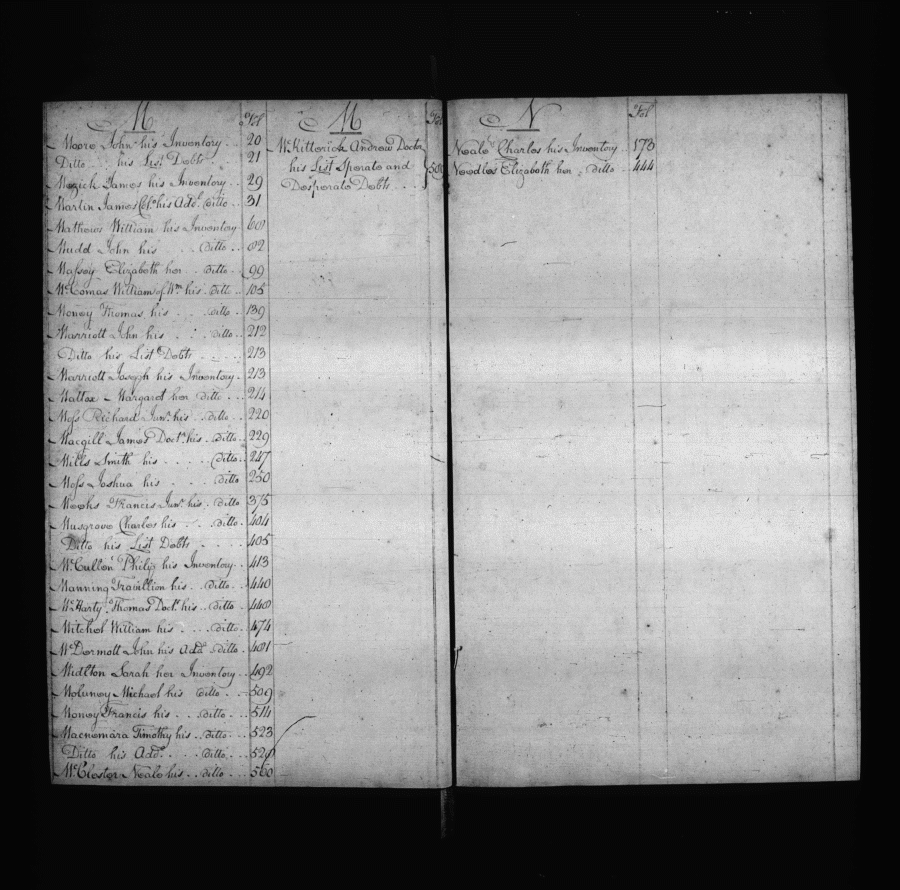 M Fol
Moore John his Inventory . . 20
Ditto his List Debts 21
Mezick James his Inventory . . 29
Martin James Col.o his Add.l Ditto . . 31
Mathews William his Inventory 60
Mudd John his . . . Ditto . . 82
Massey Elizabeth her . . Ditto . . 99
McComas William of Wm his Ditto . . 105
Money Thomas his . . . Ditto . . 139
Marriott John his . . . Ditto . . 212
Ditto his List Debts . . . . 213
Marriott Joseph his Inventory . . 213
Mattox Margaret her Ditto . . . 214
Moss Richard Junr. his . . Ditto . . 220
Macgill James Doctr. his . Ditto . . 229
Mills Smith his . . . . . Ditto . . 247
Moss Joshua his . . . . Ditto 250
Meeks Francis Junr. his . Ditto . . 375
Musgrove Charles his . . Ditto . 404
Ditto his List Debts . . . . . 405
Philip his Inventory . . 413
Manning his . . Ditto . . 440
McHarty Thomas Doctr. his . . Ditto . . 448
Mitchel William his . . . . Ditto . . 474
McDermott John his Add.l Ditto . . 481
Midlton Sarah her Inventory . . 492
Michael his Ditto . . . 509
Money Francis his . . . Ditto . . . 514
Macnemara Timothy his . . Ditto . . . 523
Ditto his Add.l . . . . Ditto . . .
Neale his . . Ditto . . . 560
M Fol
McKitterick Andrew Doctr
his List Sperate and
Desperate Debts . . .
N Fol
Neale Charles his Inventory . . 173
Needles Elizabeth her . Ditto . . 444